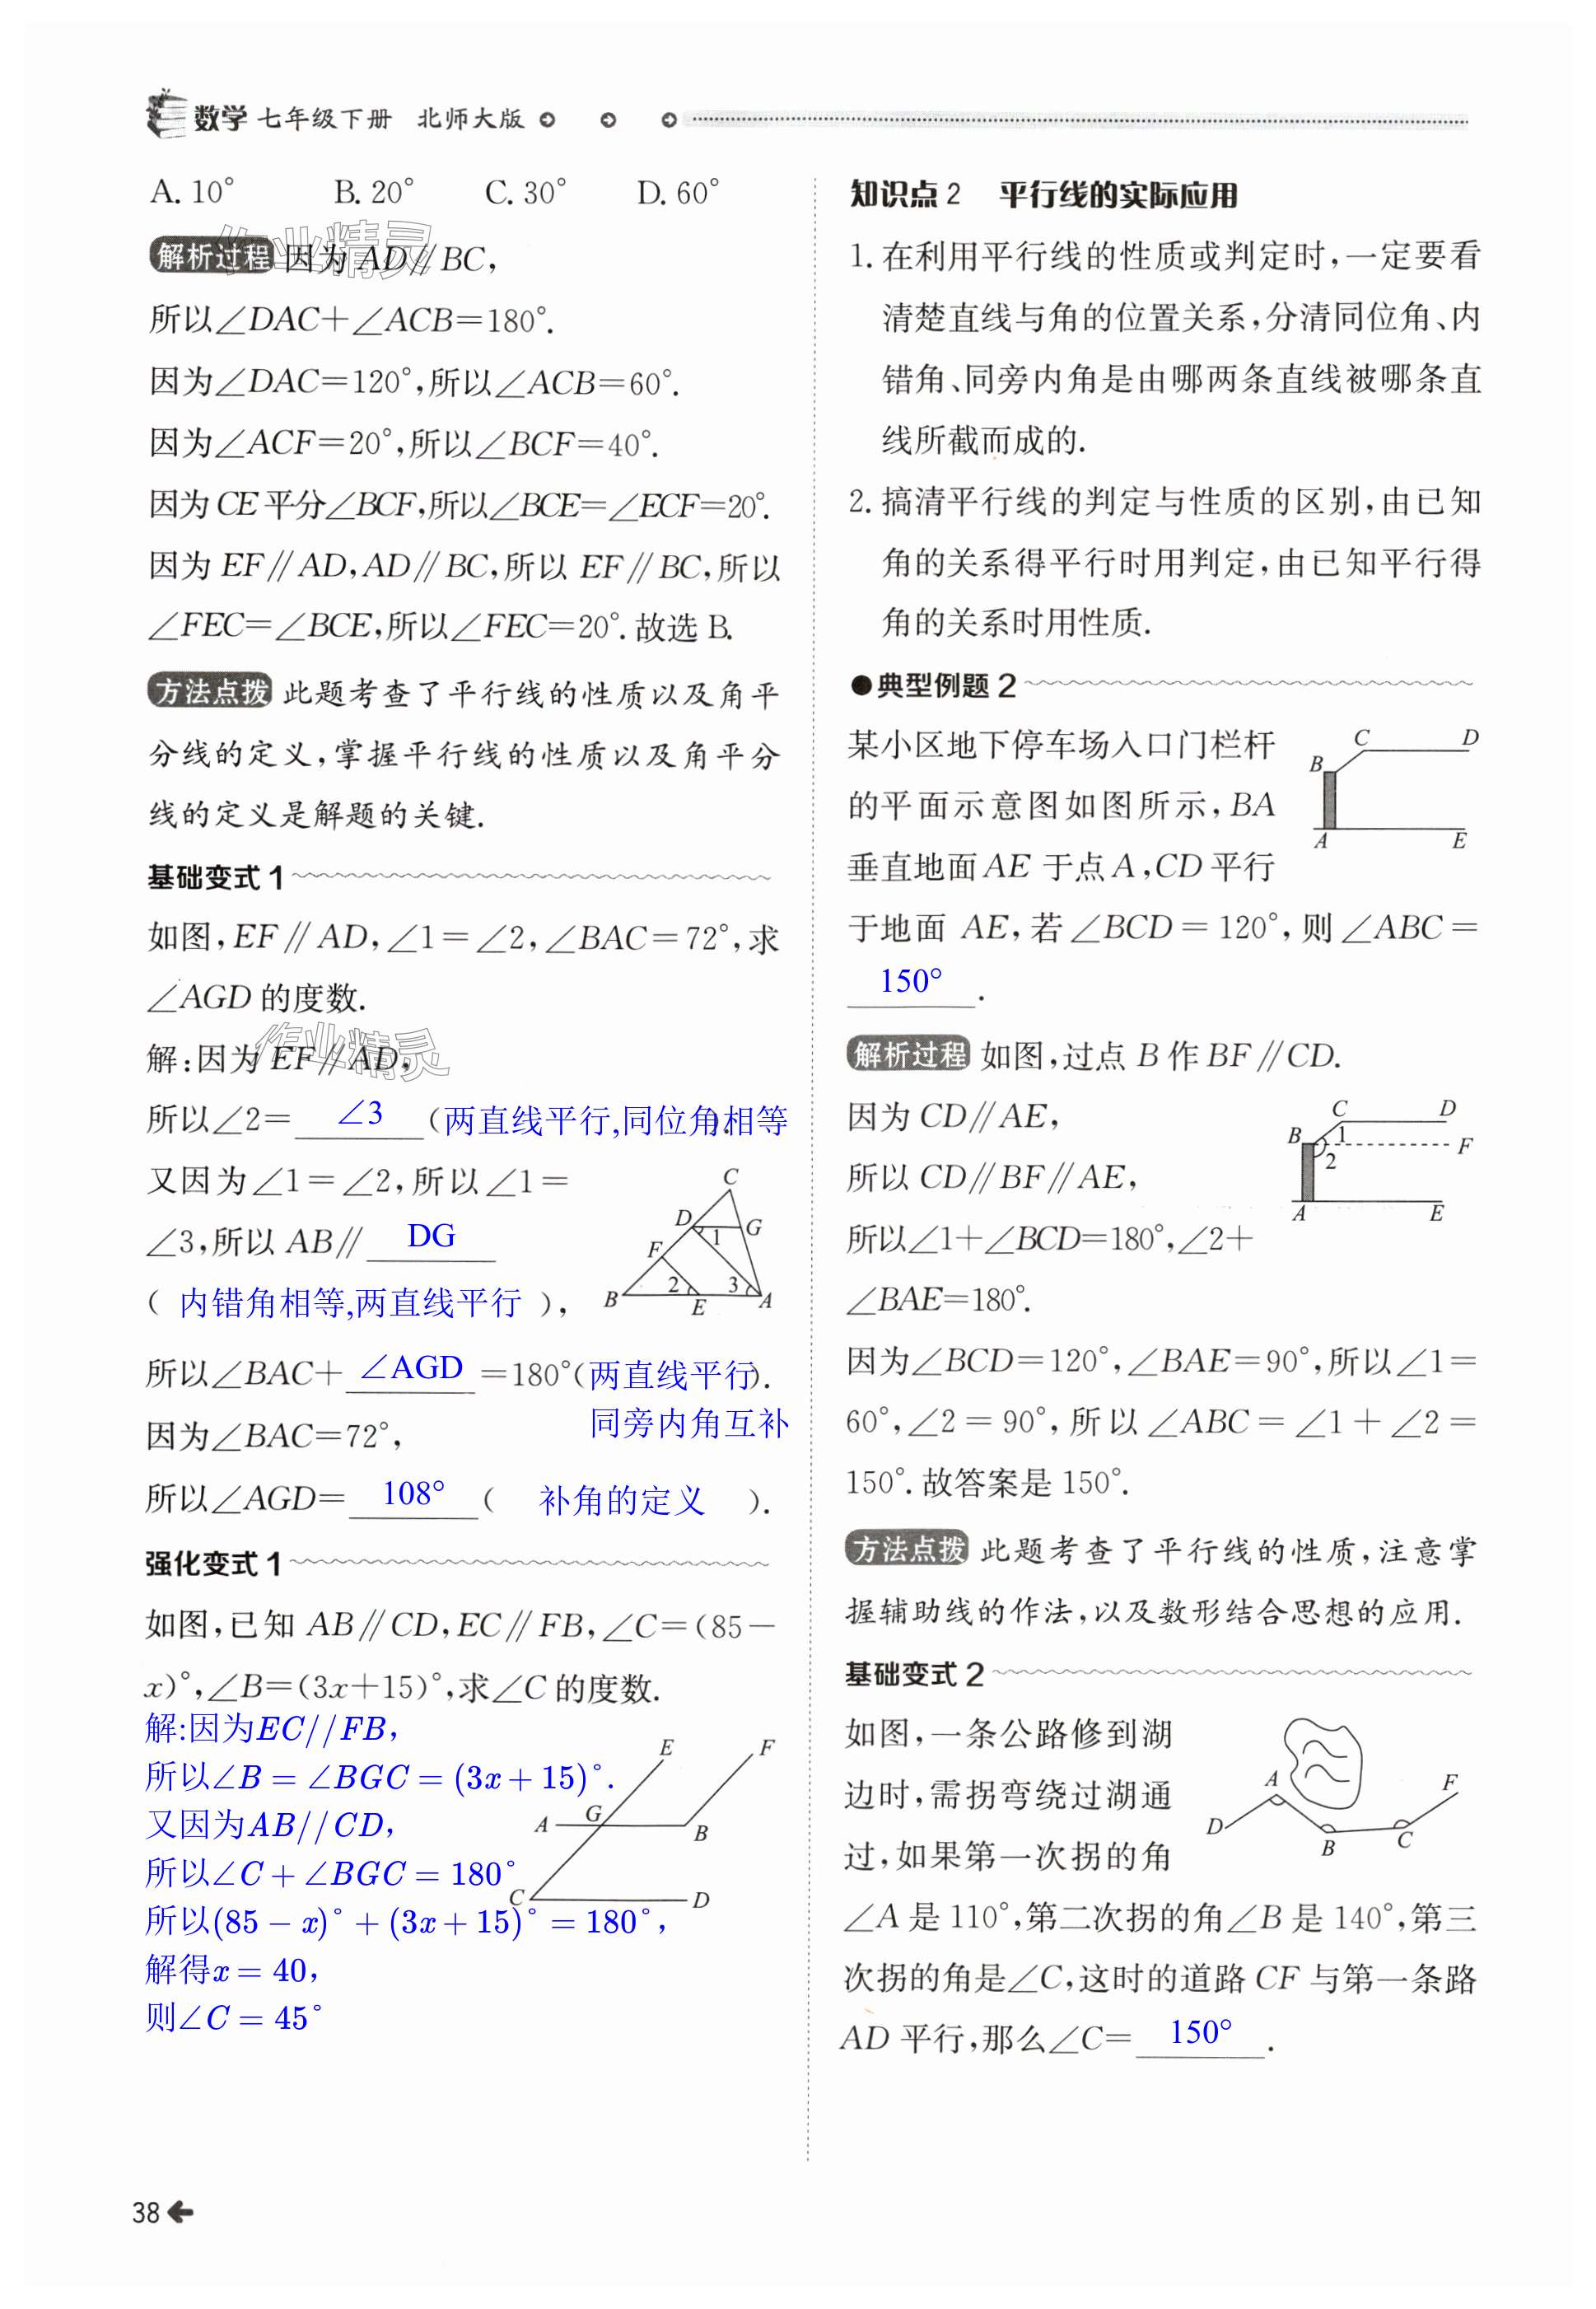 数学 七年级下册 北师大版
A. 10° B. 20° C. 30° D. 60°
解析过程 因为 AD∥BC,
所以∠DAC+∠ACB=180°.
因为∠DAC=120°,所以∠ACB=60°.
因为∠ACF=20°,所以∠BCF=40°.
因为 CE 平分∠BCF,所以∠BCE=∠ECF=20°.
因为 EF∥AD,AD∥BC,所以 EF∥BC,所以
∠FEC=∠BCE,所以∠FEC=20°.故选 B.
方法点拨 此题考查了平行线的性质以及角平
分线的定义,掌握平行线的性质以及角平分
线的定义是解题的关键.
基础变式 1
如图,EF∥AD,∠1=∠2,∠BAC=72°,求
∠AGD 的度数.
解:因为 EF∥AD,
所以∠2= ∠3 (两直线平行,同位角相等).
又因为∠1=∠2,所以∠1=
∠3,所以 AB∥ DG
( 内错角相等,两直线平行 ),
C
D G
1
F
2 3
B E A
所以∠BAC+ ∠AGD =180°(两直线平行).
同旁内角互补
因为∠BAC=72°,
所以∠AGD= 108° ( 补角的定义 ).
强化变式 1
如图,已知 AB∥CD,EC∥FB,∠C=(85-
x)°,∠B=(3x+15)°,求∠C 的度数.
解:因为EC//FB,
所以∠B=∠BGC=(3x+15)°.
又因为AB//CD,
所以∠C+∠BGC=180°
所以(85-x)°+(3x+15)°=180°,
解得x=40,
则∠C=45°
E F
A G B
C D
38
知识点 2 平行线的实际应用
1. 在利用平行线的性质或判定时,一定要看
清楚直线与角的位置关系,分清同位角、内
错角、同旁内角是由哪两条直线被哪条直
线所截而成的.
2. 搞清平行线的判定与性质的区别,由已知
角的关系得平行时用判定,由已知平行得
角的关系时用性质.
●典型例题 2
某小区地下停车场入口门栏杆
的平面示意图如图所示,BA
垂直地面 AE 于点 A,CD 平行
于地面 AE,若∠BCD=120°,则∠ABC=
150° .
C D
B
A E
解析过程 如图,过点 B 作 BF∥CD.
因为 CD∥AE,
所以 CD∥BF∥AE,
所以∠1+∠BCD=180°,∠2+
∠BAE=180°.
C D
B 1 F
2
A E
因为∠BCD=120°,∠BAE=90°,所以∠1=
60°,∠2=90°,所以∠ABC=∠1+∠2=
150°.故答案是 150°.
方法点拨 此题考查了平行线的性质,注意掌
握辅助线的作法,以及数形结合思想的应用.
基础变式 2
如图,一条公路修到湖
边时,需拐弯绕过湖通
过,如果第一次拐的角
∠A 是 110°,第二次拐的角∠B 是 140°,第三
次拐的角是∠C,这时的道路 CF 与第一条路
AD 平行,那么∠C= 150° .
A F
D B C
作业精灵
作业精灵